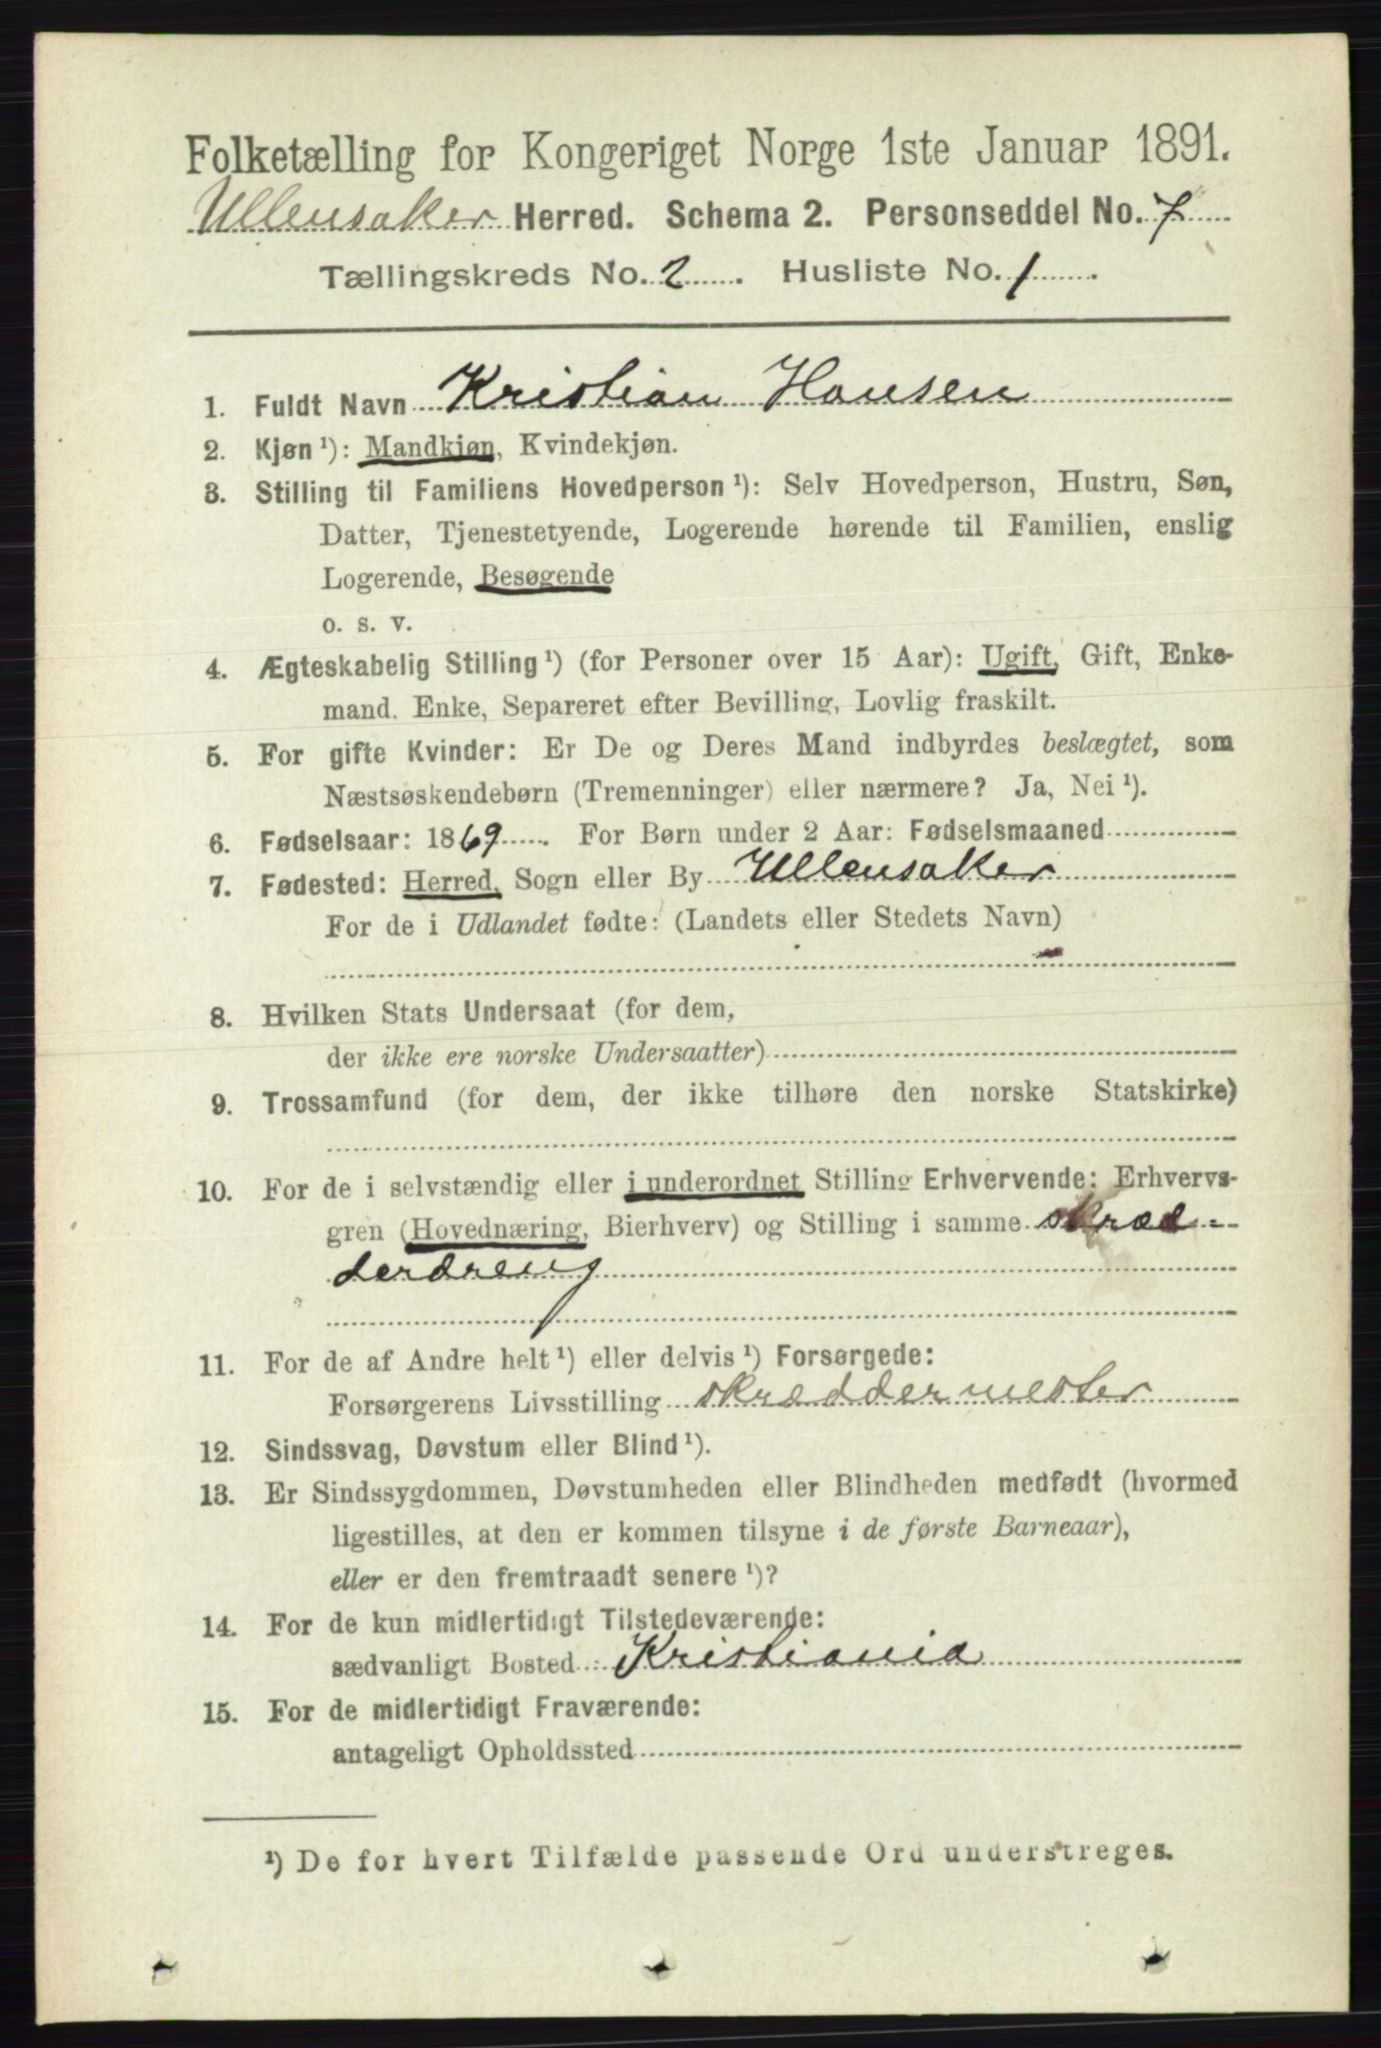 Folketælling for Kongeriget Norge 1ste Januar 1891.
Ullensaker Herred. Schema 2. Personseddel No. 7
Tællingskreds No. 2. Husliste No. 1.
1. Fuldt Navn Kristian Hansen
2. Kjøn ¹): Mandkjøn, Kvindekjøn.
3. Stilling til Familiens Hovedperson ¹): Selv Hovedperson, Hustru, Søn,
Datter, Tjenestetyende, Logerende hørende til Familien, enslig
Logerende, Besøgende
o. s. v.
4. Ægteskabelig Stilling ¹) (for Personer over 15 Aar): Ugift, Gift, Enke-
mand, Enke, Separeret efter Bevilling, Lovlig fraskilt.
5. For gifte Kvinder: Er De og Deres Mand indbyrdes beslægtet, som
Næstsøskendebørn (Tremenninger) eller nærmere? Ja, Nei ¹).
6. Fødselsaar: 1869. For Børn under 2 Aar: Fødselsmaaned
7. Fødested: Herred, Sogn eller By Ullensaker
For de i Udlandet fødte: (Landets eller Stedets Navn)
8. Hvilken Stats Undersaat (for dem,
der ikke ere norske Undersaatter)
9. Trossamfund (for dem, der ikke tilhøre den norske Statskirke)
10. For de i selvstændig eller i underordnet Stilling Erhvervende: Erhvervs-
gren (Hovednæring, Bierhverv) og Stilling i samme skræd-
derdreng
11. For de af Andre helt ¹) eller delvis ¹) Forsørgede:
Forsørgerens Livsstilling skræddermester
12. Sindssvag, Døvstum eller Blind ¹).
13. Er Sindssygdommen, Døvstumheden eller Blindheden medfødt (hvormed
ligestilles, at den er kommen tilsyne i de første Barneaar),
eller er den fremtraadt senere ¹)?
14. For de kun midlertidigt Tilstedeværende:
sædvanligt Bosted: Kristiania
15. For de midlertidigt Fraværende:
antageligt Opholdssted
¹) De for hvert Tilfælde passende Ord understreges.